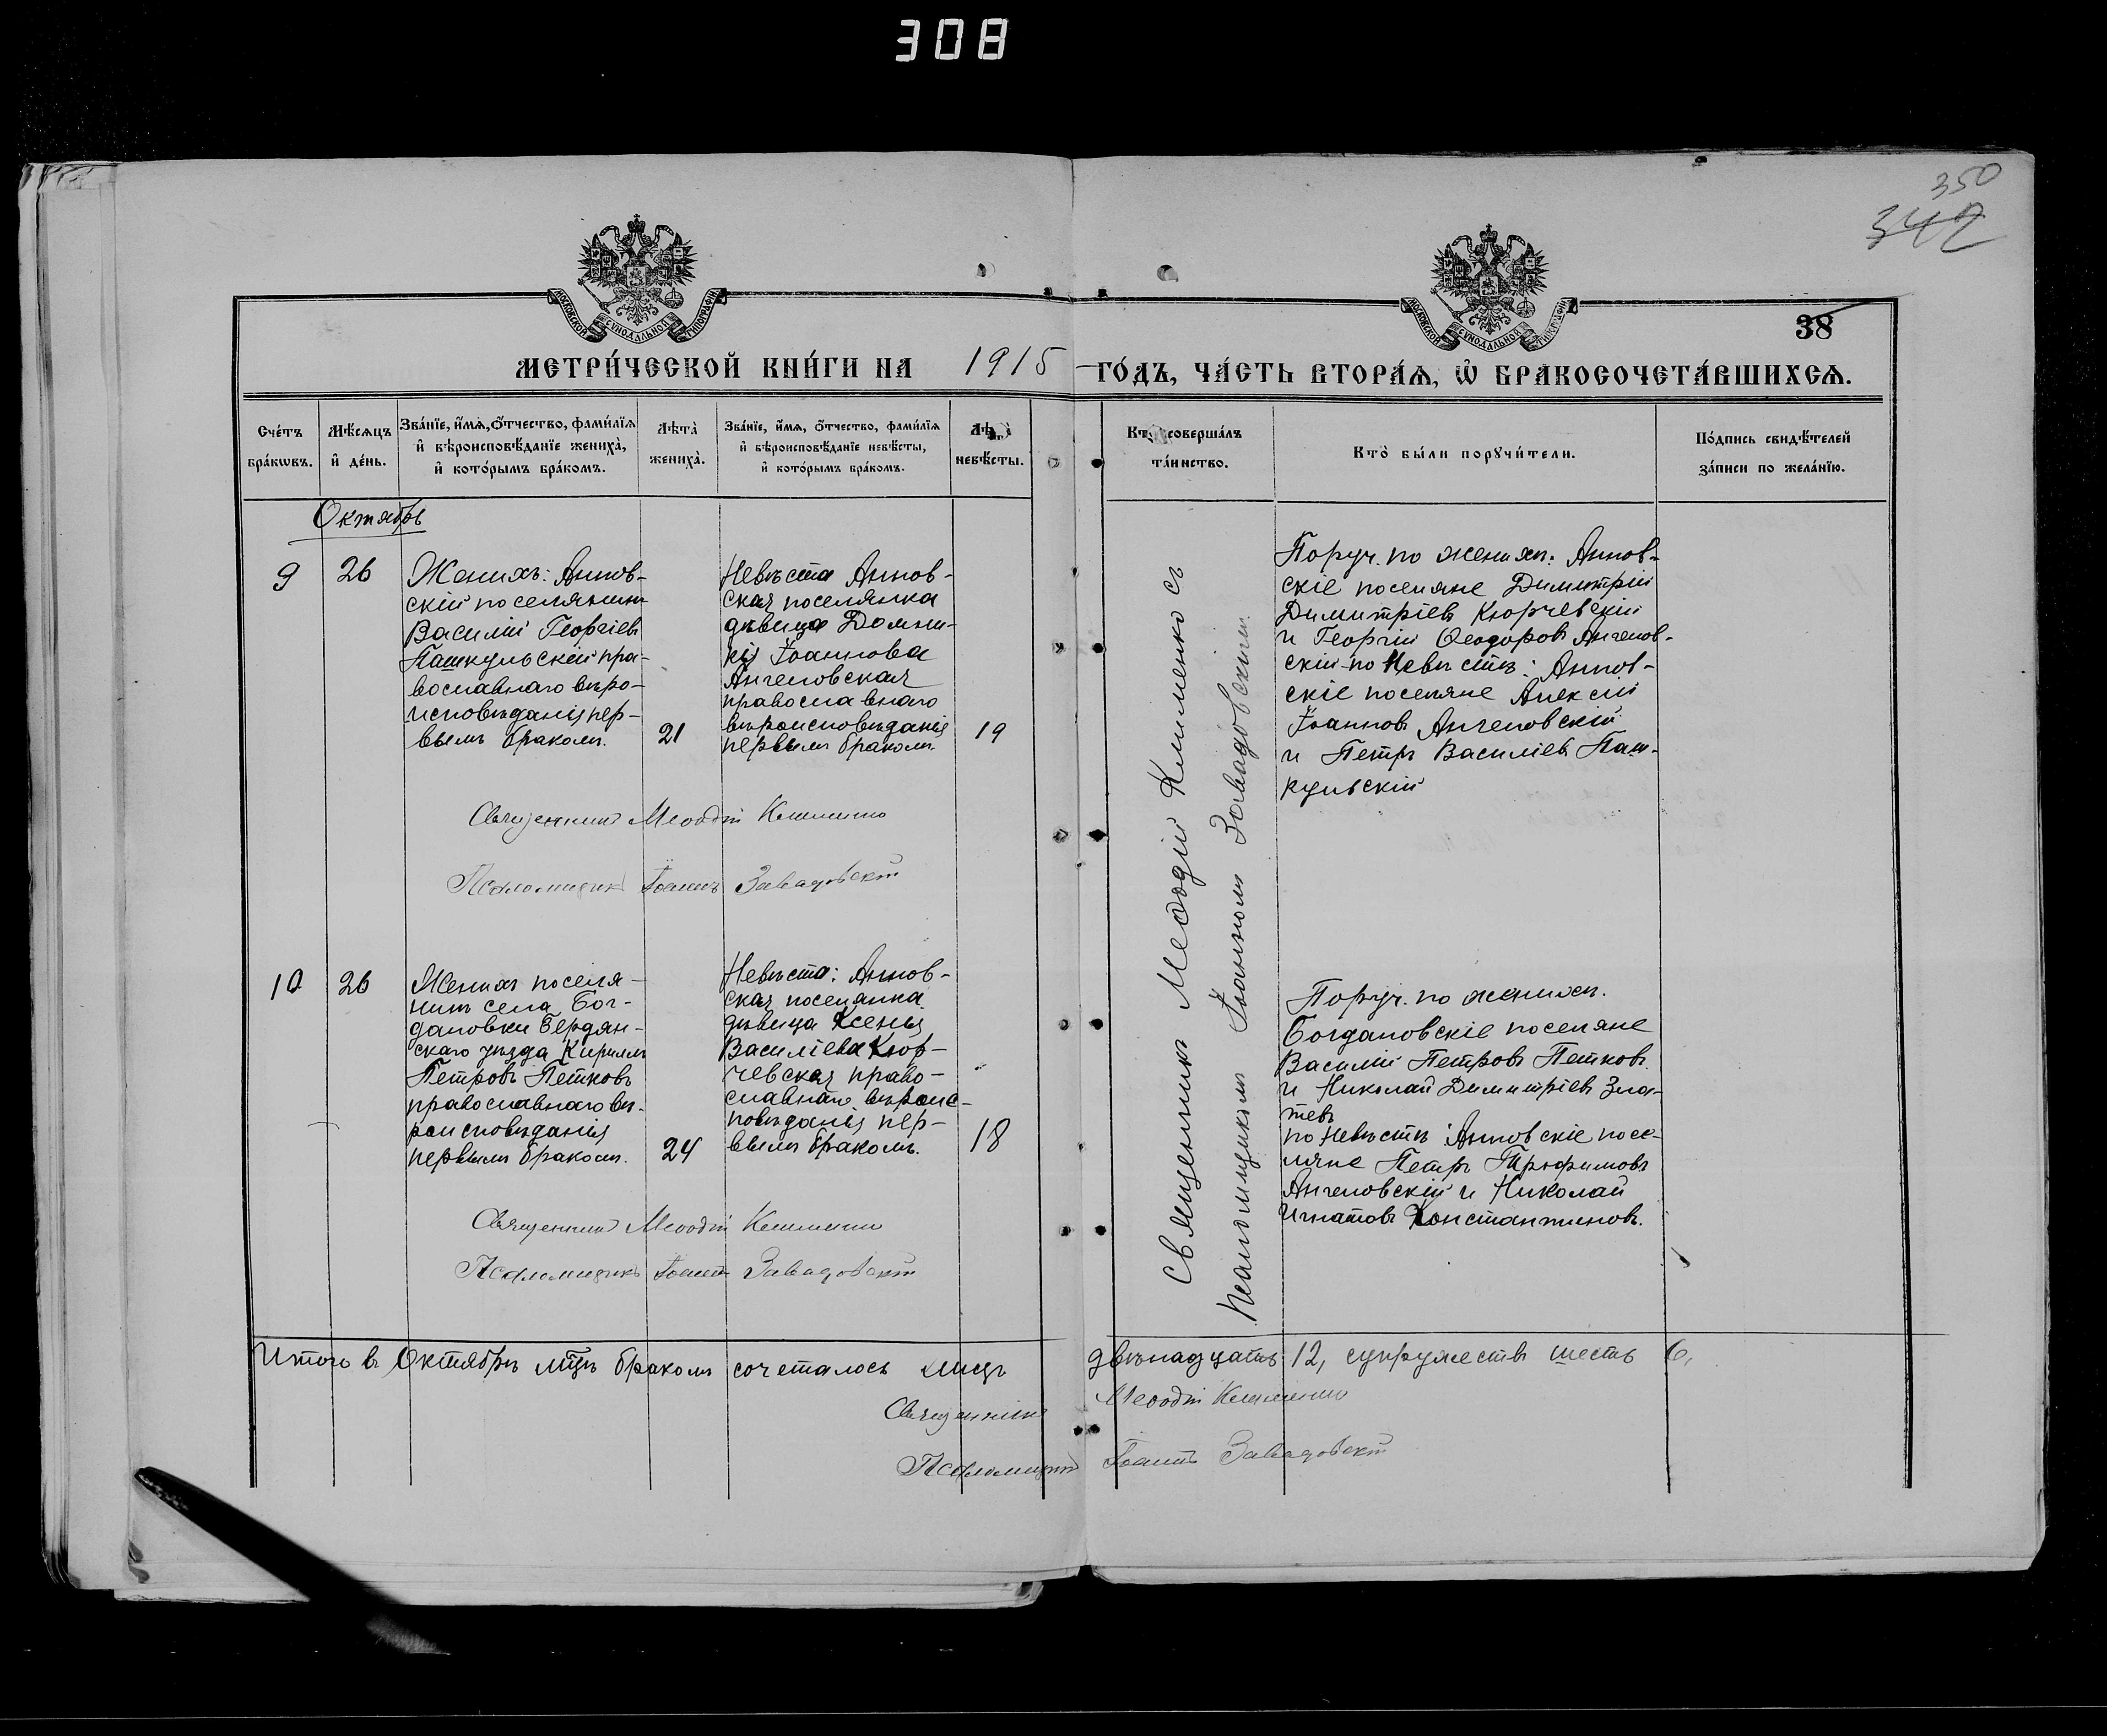 308
350
342
МОСКОВСКОЙ СУНОДАЛЬНОЙ ТИПОГРАФІИ
МОСКОВСКОЙ СУНОДАЛЬНОЙ ТИПОГРАФІИ
38
МЕТРИ́ЧЕСКОЙ КНИ́ГИ НА 1915 ГО́ДЪ, ЧА́СТЬ ВТОРА́Ѧ, Ѡ҆ БРАКОСОЧЕТА́ВШИХСѦ.
Сче́тъ
бра́кѡвъ.
Мѣ́сѧцъ
и҆ де́нь.
Зва́нїе, и҆́мѧ, ѻ҆́тчество, фами́лїѧ
и҆ вѣроисповѣ́данїе жениха̀,
и҆ кото́рымъ бра́комъ.
Лѣта̀
жениха̀.
Зва́нїе, и҆́мѧ, ѻ҆́тчество, фами́лїѧ
и҆ вѣроисповѣ́данїе невѣ́сты,
и҆ кото́рымъ бра́комъ.
Лѣта̀
невѣ́сты.
Кто̀ соверша́лъ
та́инство.
Кто̀ бы́ли порꙋчи́тели.
По́дпись свидѣ́телей
за́писи по жела́нїю.
Октябрь
9
26
Женихъ: Аннов-
скій поселянинъ
Василій Георгіевъ
Пашкульскій пра-
вославнаго вѣро-
исповѣданія пер-
вымъ бракомъ.
21
Невѣста Аннов-
ская поселянка
дѣвица Домни-
кія Іоаннова
Ангеловская
православнаго
вѣроисповѣданія
первымъ бракомъ.
19
Поруч. по женихѣ: Аннов-
скіе поселяне Димитрій
Димитріевъ Кюрчевскій
и Георгій Ѳеодоровъ Ангелов-
скій по Невѣстѣ: Аннов-
скіе поселяне Алексій
Іоанновъ Ангеловскій
и Петръ Василіевъ Паш-
кульскій
Священникъ Меѳодій Клименко
Псаломщикъ Іоаннъ Завадовскій
Священникъ Меѳодій Клименко съ
псаломщикомъ Іоанномъ Завадовскимъ.
10
26
Женихъ поселя-
нинъ села Бог-
дановки Бердян-
скаго уѣзда Кириллъ
Петровъ Петковъ
православнаго вѣ-
роисповѣданія
первымъ бракомъ.
24
Невѣста: Аннов-
ская поселянка
дѣвица Ксенія
Василіева Кюр-
чевская право-
славнаго вѣроис-
повѣданія пер-
вымъ бракомъ.
18
Поруч. по женихѣ.
Богдановскіе поселяне
Василій Петровъ Петковъ
и Николай Димитріевъ Зла-
тевъ
по Невѣстѣ: Анновскіе посе-
ляне Петръ Трофимовъ
Ангеловскій и Николай
Игнатовъ Константиновъ.
Священникъ Меѳодій Клименко
Псаломщикъ Іоаннъ Завадовскій
Итого въ Октябрѣ мцѣ бракомъ сочеталось лицъ двѣнадцать 12, супружествъ шесть 6,
Священникъ Меѳодій Клименко
Псаломщикъ Іоаннъ Завадовскій